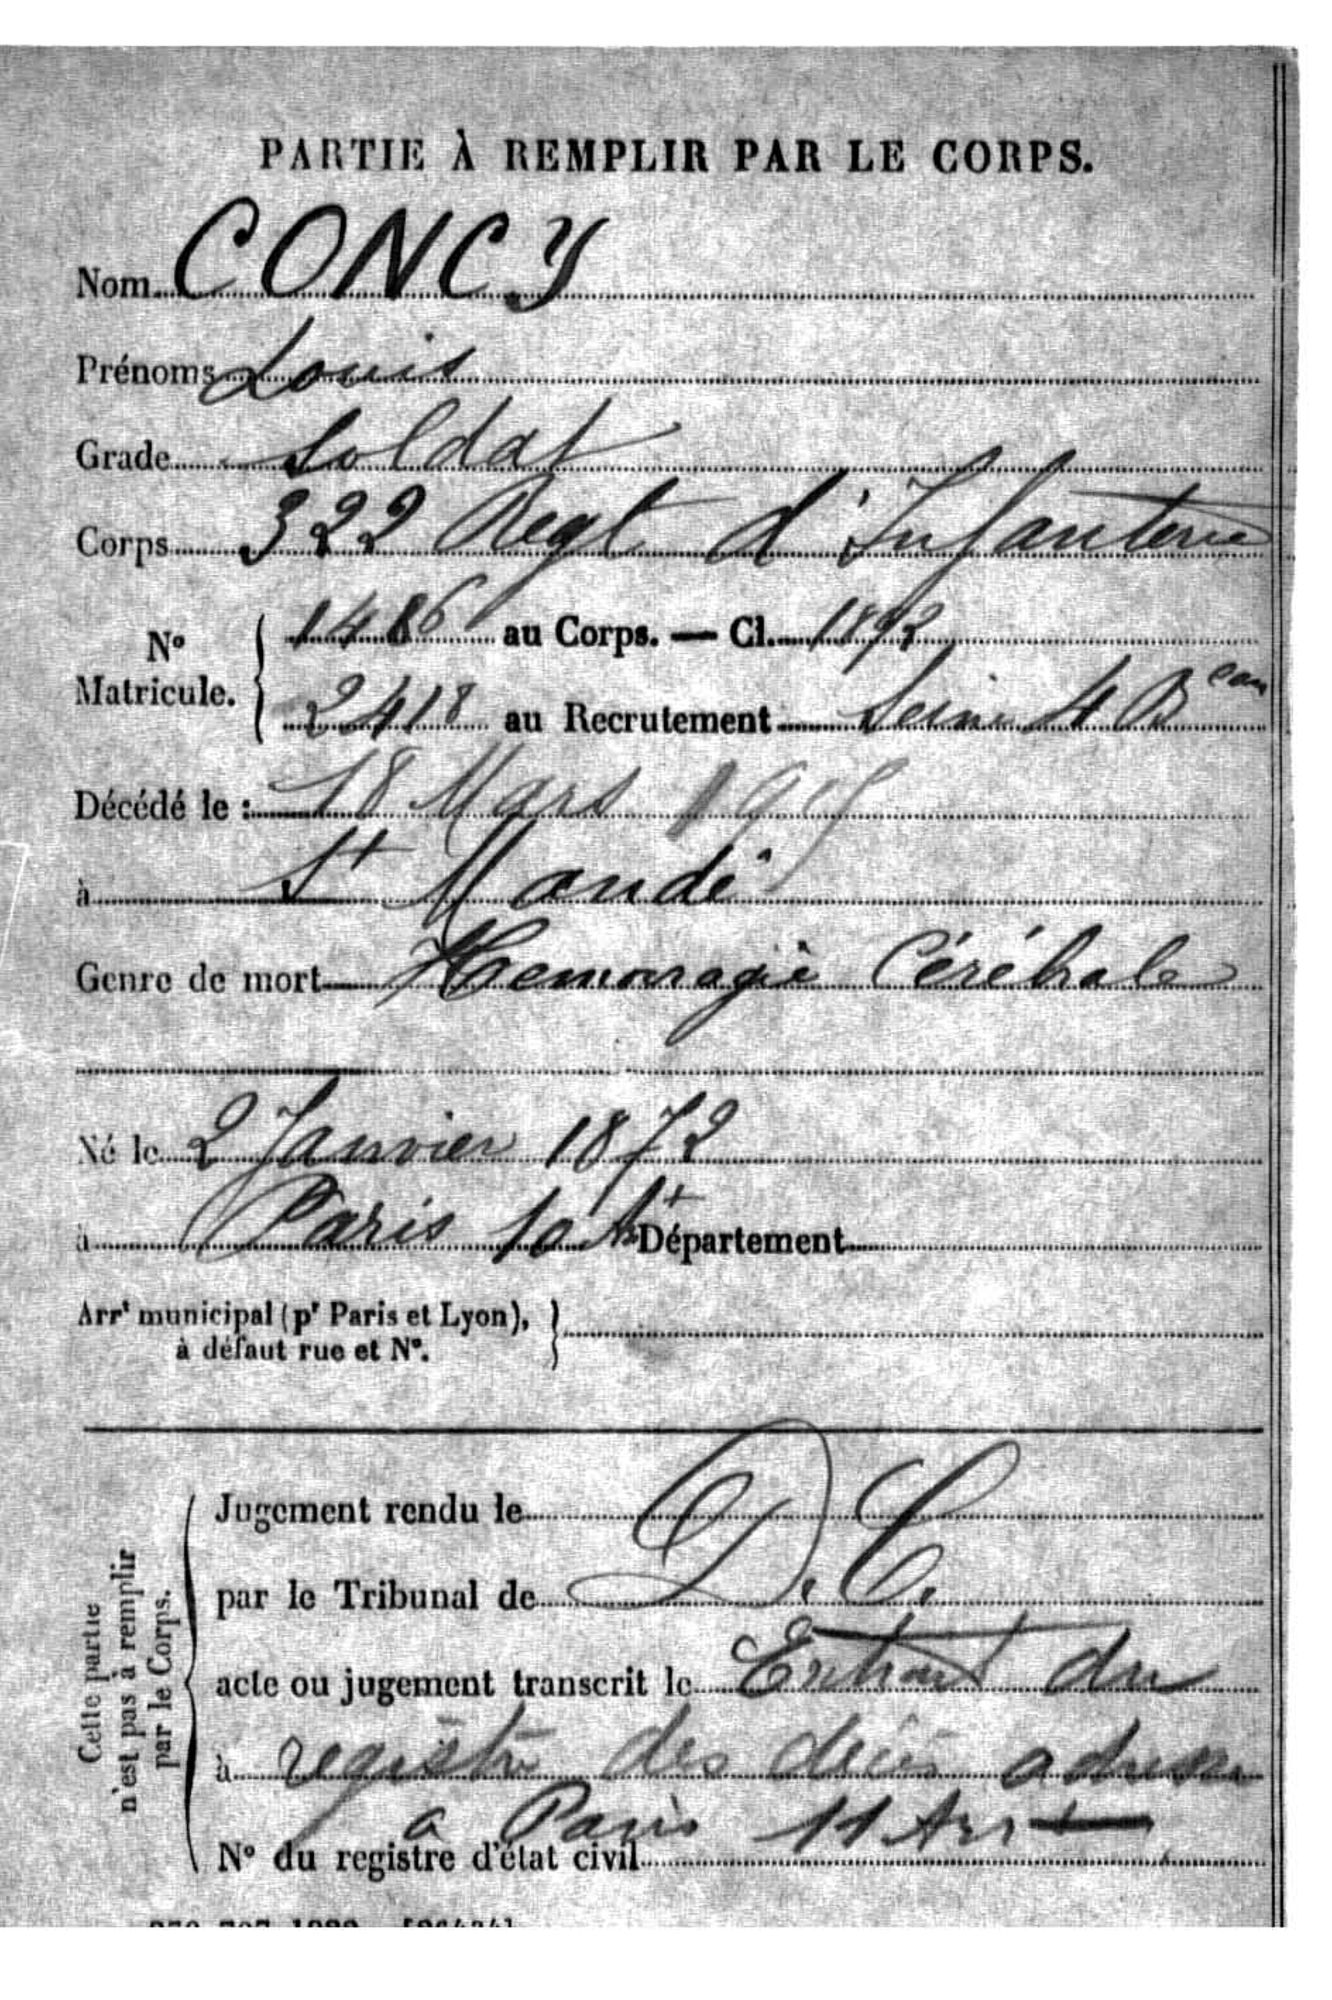 PARTIE À REMPLIR PAR LE CORPS.
Nom CONCY
Prénoms Louis
Grade Soldat
Corps 322 Regt d'Infanterie
N° Matricule. { 1486 au Corps. — Cl. 1892
2418 au Recrutement Seine 4 Beau
Décédé le : 18 Mars 1915
à St Mandé
Genre de mort Hemorragie Cérébrale
Né le 2 Janvier 1872
à Paris 10 Art Département
Arrt municipal (pr Paris et Lyon), à défaut rue et N°.
Cette partie n'est pas à remplir par le Corps.
Jugement rendu le D.C.
par le Tribunal de
acte ou jugement transcrit le Extrait du
à registre des décès adressé
a Paris 11 Arrt
N° du registre d'état civil